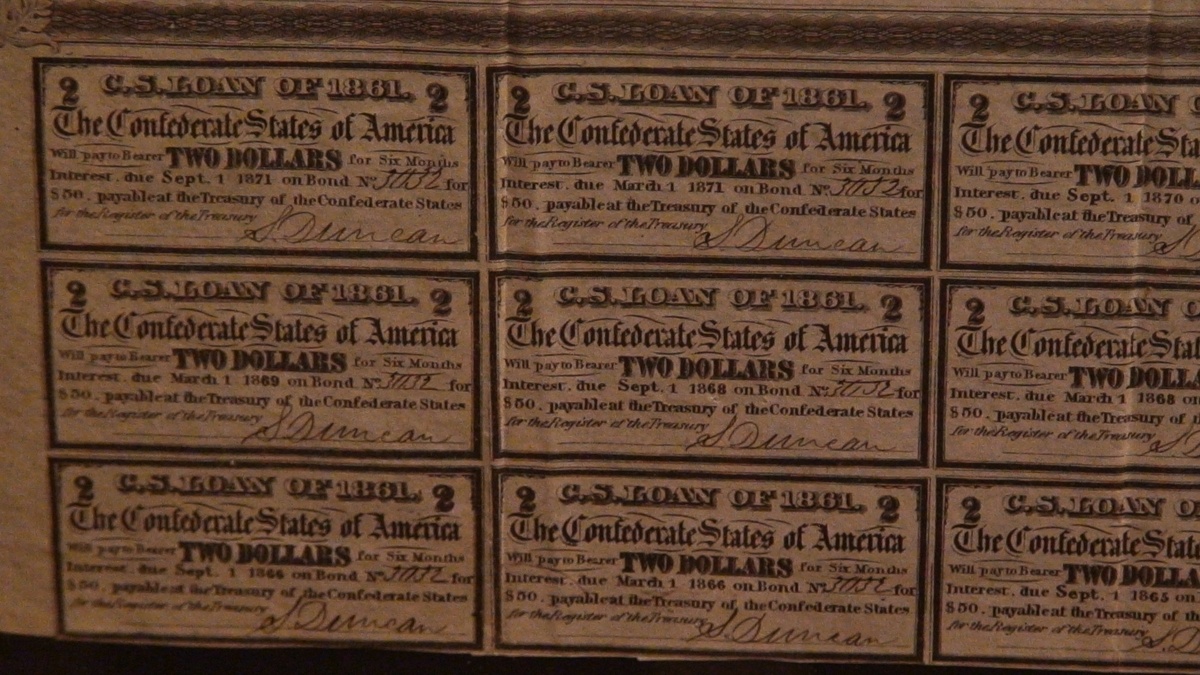 2 C.S. LOAN OF 1861. 2
The Confederate States of America
Will pay to Bearer TWO DOLLARS for Six Months
Interest, due Sept. 1 1871 on Bond No. for
$50, payable at the Treasury of the Confederate States
for the Register of the Treasury
S Duncan
2 C.S. LOAN OF 1861. 2
The Confederate States of America
Will pay to Bearer TWO DOLLARS for Six Months
Interest, due March 1 1871 on Bond No. for
$50, payable at the Treasury of the Confederate States
for the Register of the Treasury
S Duncan
2 C.S. LOAN
The Confederate
Will pay to Bearer TWO
Interest, due Sept. 1 1870
$50, payable at the Treasury of
for the Register of the Treasury
2 C.S. LOAN OF 1861. 2
The Confederate States of America
Will pay to Bearer TWO DOLLARS for Six Months
Interest, due March 1 1869 on Bond No. for
$50, payable at the Treasury of the Confederate States
for the Register of the Treasury
S Duncan
2 C.S. LOAN OF 1861. 2
The Confederate States of America
Will pay to Bearer TWO DOLLARS for Six Months
Interest, due Sept. 1 1868 on Bond No. for
$50, payable at the Treasury of the Confederate States
for the Register of the Treasury
S Duncan
2 C.S. LOAN
The Confederate
Will pay to Bearer TWO
Interest, due March 1 1868 on
$50, payable at the Treasury of
for the Register of the Treasury
2 C.S. LOAN OF 1861. 2
The Confederate States of America
Will pay to Bearer TWO DOLLARS for Six Months
Interest, due Sept. 1 1866 on Bond No. for
$50, payable at the Treasury of the Confederate States
for the Register of the Treasury
S Duncan
2 C.S. LOAN OF 1861. 2
The Confederate States of America
Will pay to Bearer TWO DOLLARS for Six Months
Interest, due March 1 1866 on Bond No. for
$50, payable at the Treasury of the Confederate States
for the Register of the Treasury
S Duncan
2 C.S. LOAN
The Confederate
Will pay to Bearer TWO
Interest, due Sept. 1 1865 on
$50, payable at the Treasury of the
for the Register of the Treasury